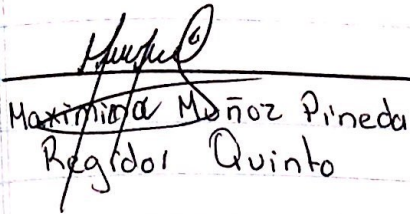 Maximina Muñoz Pineda
Regidor Quinto